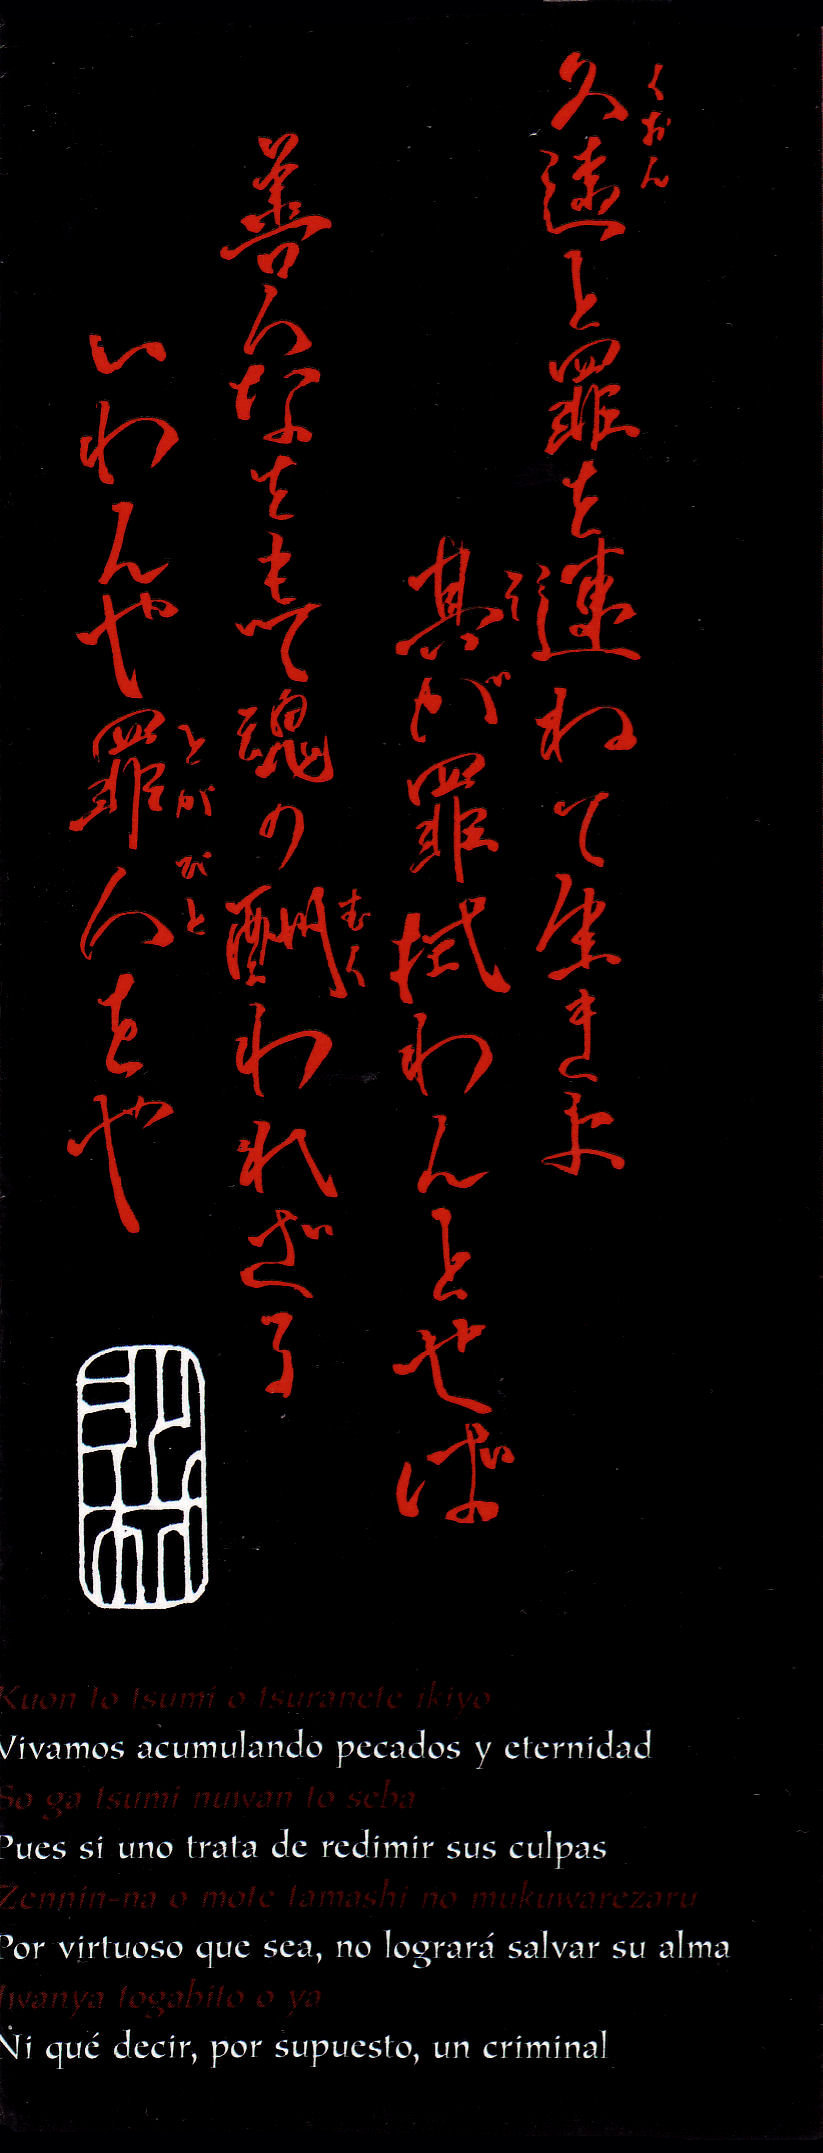 久遠と罪を連ねて生きよ
くおん
其が罪拭わんとせば
そ
善人なをもて魂の酬われざる
むく
いわんや罪人をや
とがびと
Kuon to tsumi o tsuranete ikiyo
Vivamos acumulando pecados y eternidad
So ga tsumi nuwan to seba
Pues si uno trata de redimir sus culpas
Zennin-na o mote tamashi no mukuwarezaru
Por virtuoso que sea, no logrará salvar su alma
Iwanya togabito o ya
Ni qué decir, por supuesto, un criminal